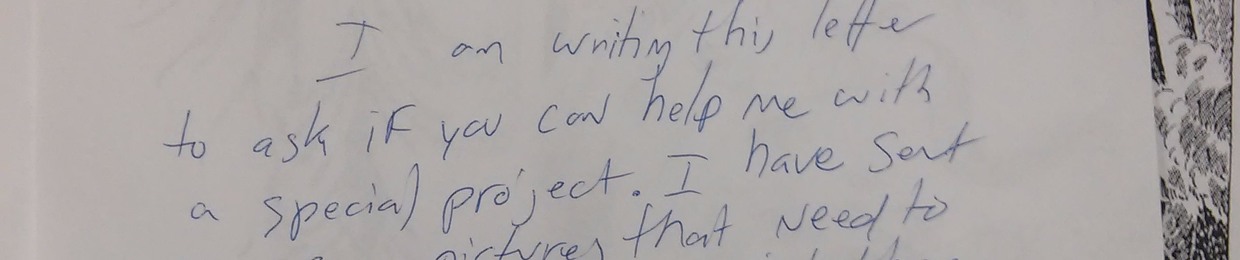 I am writing this letter
to ask if you can help me with
a special project. I have sent
pictures that need to